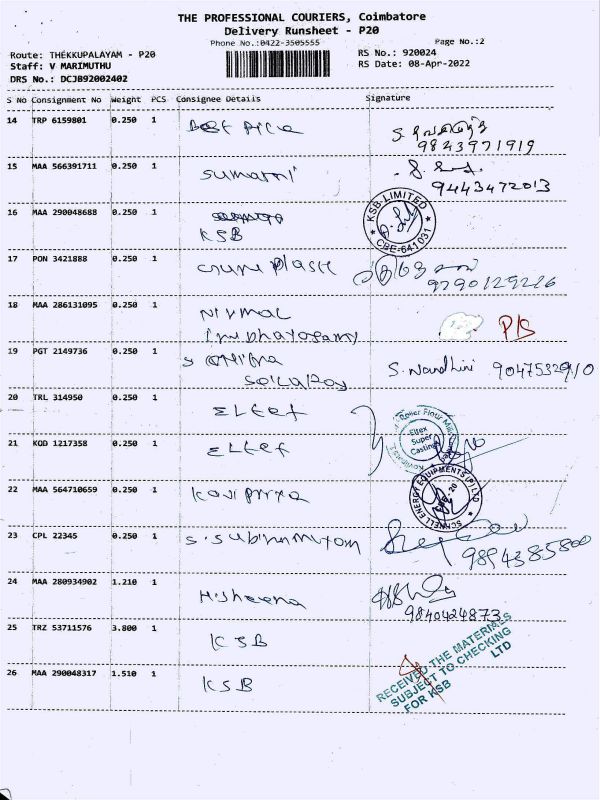 THE PROFESSIONAL COURIERS, Coimbatore
Delivery Runsheet - P20
Phone No.:0422-3505555
Page No.:2
Route: THEKKUPALAYAM - P20
RS No.: 920024
Staff: V MARIMUTHU
RS Date: 08-Apr-2022
DRS No.: DCJB92002402
S No Consignment No Weight PCS Consignee Details Signature
14 TRP 6159801 0.250 1 Best price
9843971919
15 MAA 566391711 0.250 1 Sumathi
9443472013
16 MAA 290048688 0.250 1
KSB
KSB LIMITED
CBE-641 031
17 PON 3421888 0.250 1 plastic
9790129226
18 MAA 286131095 0.250 1 Nirmal
P/S
19 PGT 2149736 0.250 1
S. Nandhini
20 TRL 314950 0.250 1
Roller Flour Mills
Eltex
Super
Castings
21 KOD 1217358 0.250 1
SCHNELL ENERGY EQUIPMENTS (P) LTD
CBE - 20
22 MAA 564710659 0.250 1
23 CPL 22345 0.250 1
9894385800
24 MAA 280934902 1.210 1 H.sheena
9840424873
25 TRZ 53711576 3.800 1 KSB
26 MAA 290048317 1.510 1 KSB
RECEIVED THE MATERIALS
SUBJECT TO CHECKING
FOR KSB LTD